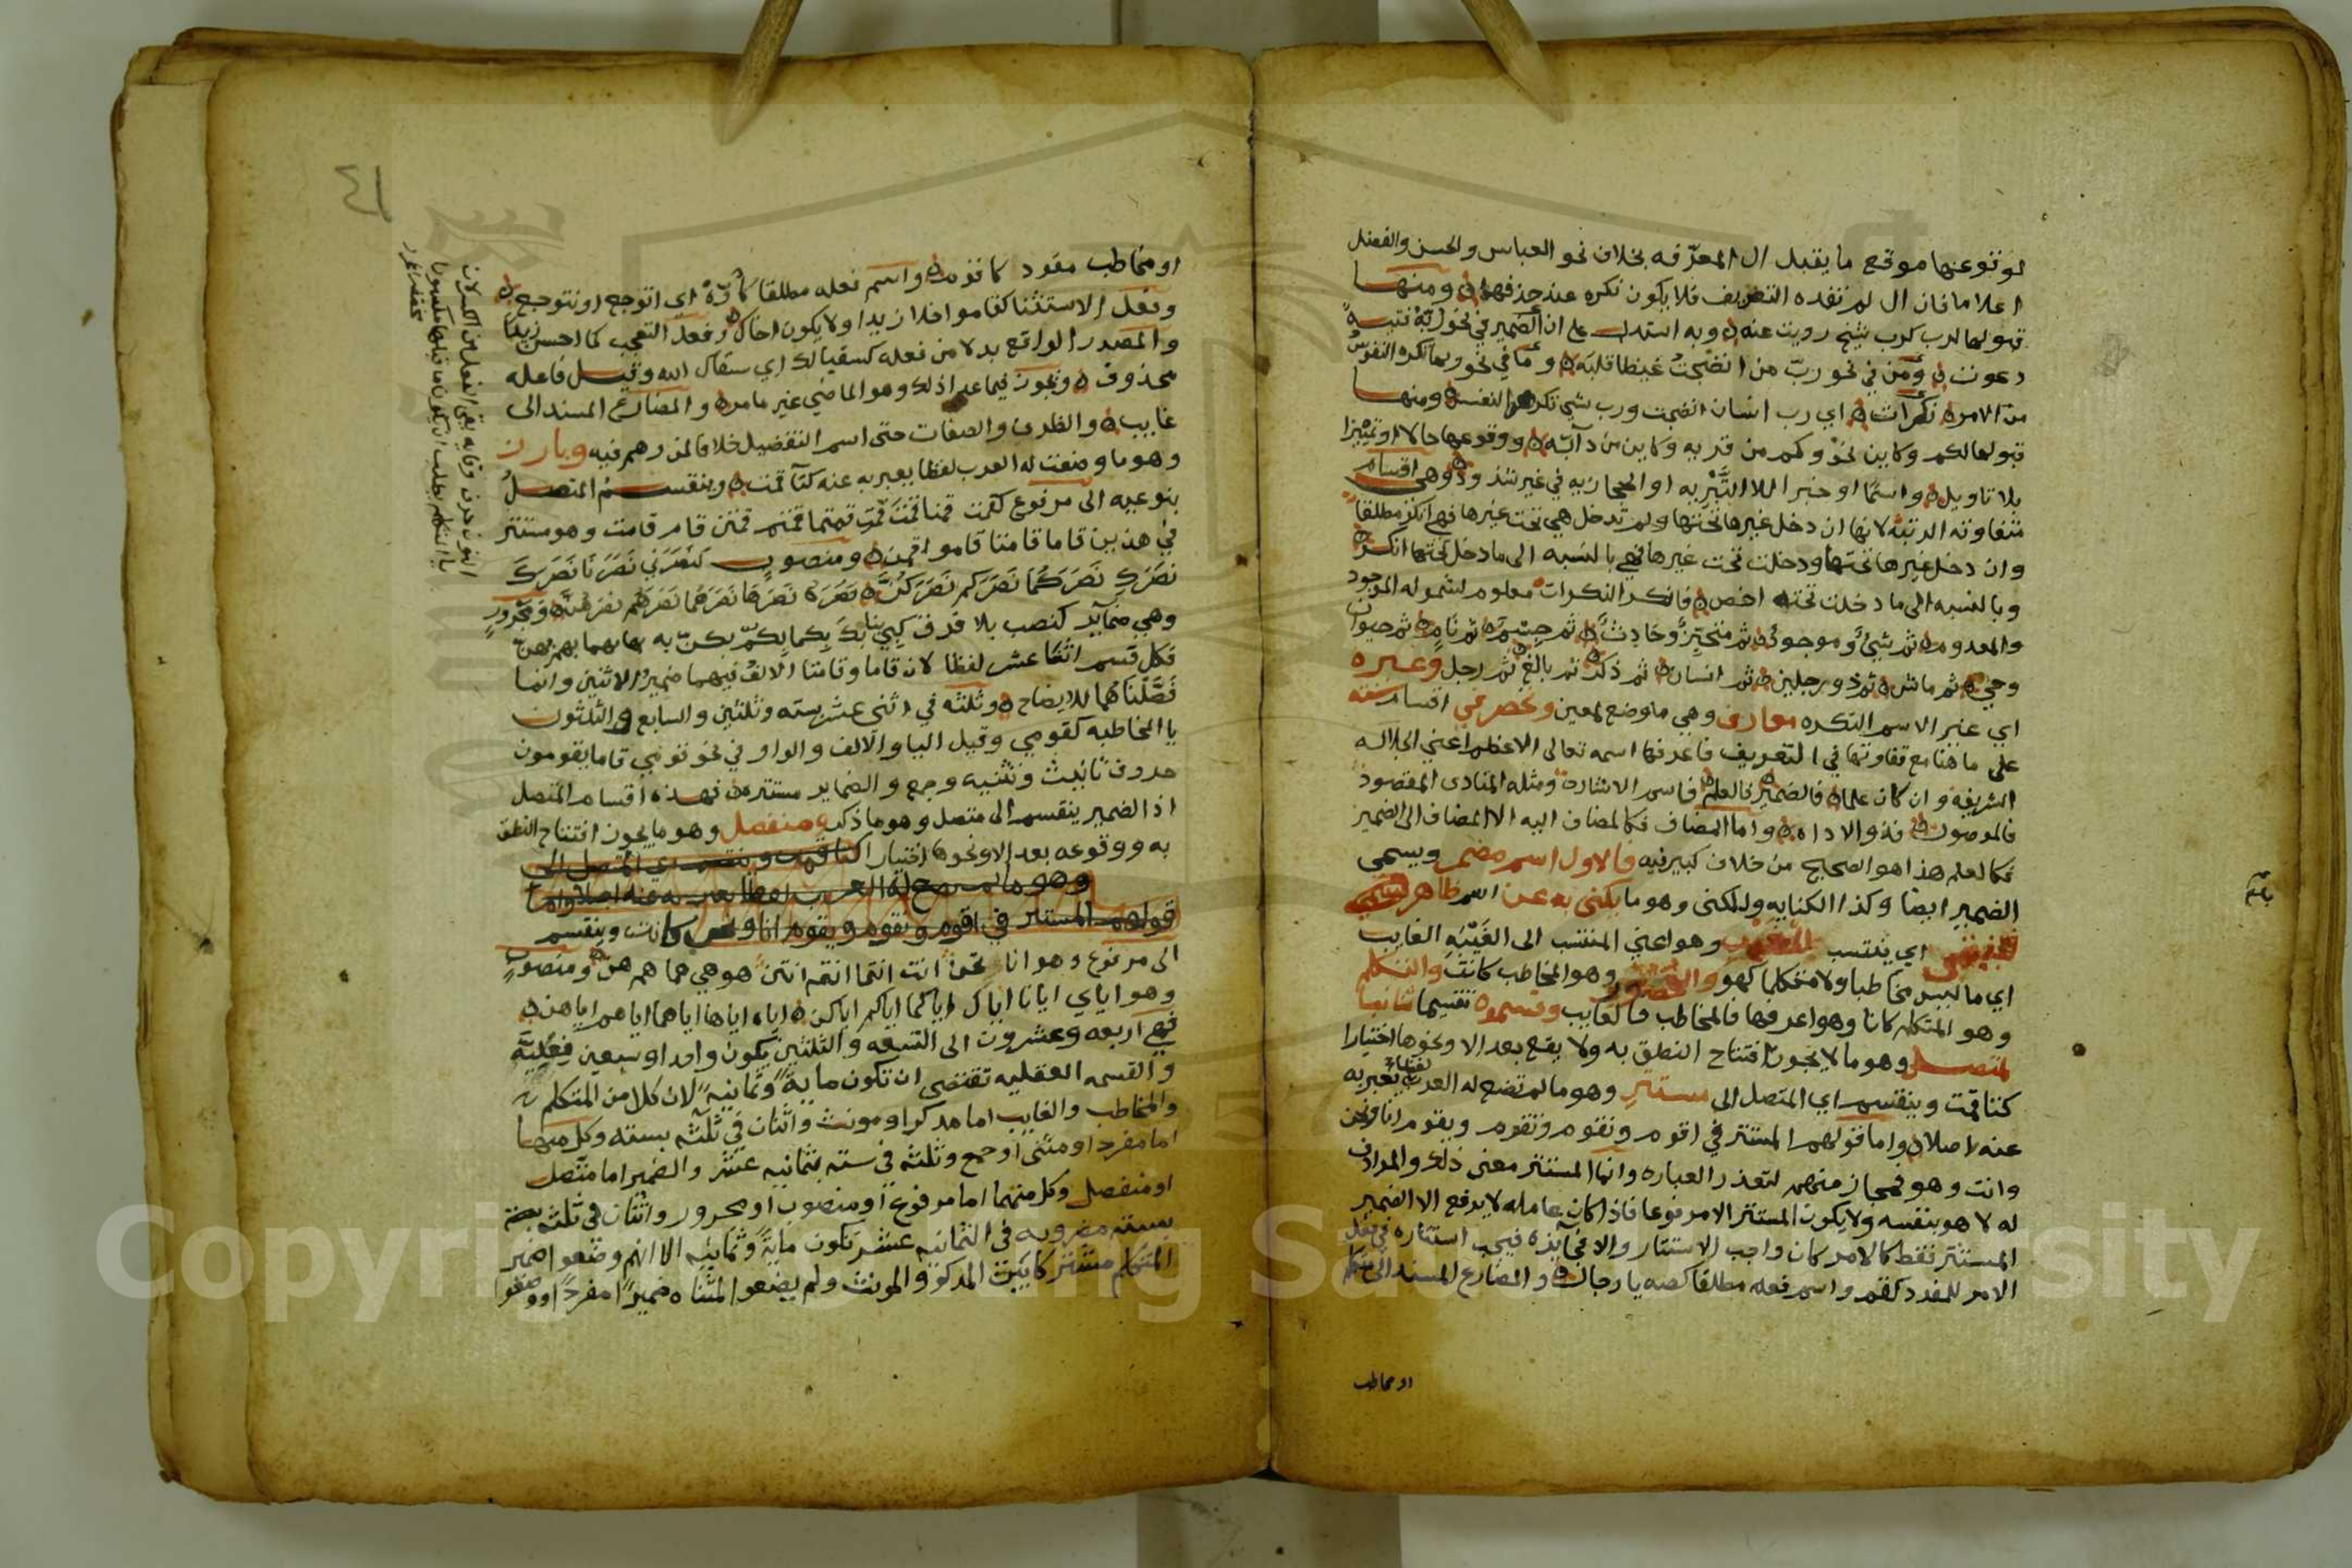 لوقوعها موقع ما يقبل ال المعرفه بخلاف نحو العباس والحسن والفضل
اعلاما فان ال لم تفده التعريف فلا يكون نكره عند حذفها ومنها
قبولها لرب كرب شيخ رويت عنه وبه استدل على ان الضمير في نحو ربه فتيه
دعوت ومن في نحو رب من انضجت غيظا قلبه وما في نحو ربما تكره النفوس
من الامر نكرات اي رب انسان انضجت ورب شي تكرهه النفس ومنها
قبولها لكم وكاين نحو وكم من قريه وكاين من دآبه ووقوعها حالا او تمييزا
بلا تاويل واسما او خبرا للا التبريه او الحجازيه في غير شذوذ وهي اقسام
متفاوته الرتبه لانها ان دخل غيرها تحتها ولم تدخل هي تحت غيرها فهي انكر مطلقا
وان دخل غيرها تحتها ودخلت تحت غيرها فهي بالنسبه الى ما دخل تحتها انكر
وبالنسبه الى ما دخلت تحته اخص فانكر النكرات معلوم لشموله الموجود
والمعدوم ثم شيء وموجود ثم متحيز وحادث ثم جسم ثم نام ثم حيوان
وحي ثم ماش ثم ذو رجلين ثم انسان ثم ذكر ثم بالغ ثم رجل وغيره
اي غير الاسم النكره معارف وهي ما وضع لمعين وتحصر في اقسام سته
على ما هنا مع تفاوتها في التعريف فاعرفها اسمه تعالى الاعظم اعني الجلاله
الشريفه وان كان علما فالضمير فالعلم فاسم الاشارة ومثله المنادى المقصود
فالموصول فذو الاداه واما المضاف فكالمضاف اليه الا المضاف الى الضمير
فكالعلم هذا هو الصحيح من خلاف كبير فيه فالاول اسم مضمر ويسمى
الضمير ايضا وكذا الكنايه والمكنى وهو ما يكنى به عن اسم ظاهر
اي ينتسب وهو اعني المنتسب الى الغيبه الغايب
اي ما ليس مخاطبا ولا متكلما كهو والحضور وهو المخاطب كانت والتكلم
وهو المتكلم كانا وهو اعرفها فالمخاطب فالغايب وقسموه تقسيما ثانيا
لمتصل وهو ما لا يجوز افتتاح النطق به ولا يقع بعد الا ونحوها اختيارا
كتا قمت وينقسم اي المتصل الى مستتر وهو ما لم تضع له العرب لفظا يعبر به
عنه اصلا واما قولهم المستتر في اقوم ونقوم وتقوم ويقوم انا ونحن
وانت وهو فمجاز منهم لتعذر العباره وانما المستتر معنى ذلك والمرادف
له لا هو بنفسه ولا يكون المستتر الا مرفوعا فاذا كان عامله لا يرفع الا الضمير
المستتر فقط كالامر كان واجب الاستتار والا فجايزه فيجب استتاره في فعل
الامر للمفرد كقم واسم فعله مطلقا كصه يا رجال والمضارع المسند الى متكلم
او مخاطب
او مخاطب مفرد كاقوم واسم فعله مطلقا كاوه اي اتوجع او نتوجع
وفعل الاستثنا كقاموا خلا زيدا ولا يكون اخاك وفعل التعجب كما احسن زيدا
والمصدر الواقع بدلا من فعله كسقيا لك اي سقاك الله وقيل فاعله
محذوف ويجوز فيما عدا ذلك وهو الماضي غير ما مر والمضارع المسند الى
غايب والظرف والصفات حتى اسم التفضيل خلافا لمن وهم فيه وبارز
وهو ما وضعت له العرب لفظا يعبر به عنه كتآ قمت وينقسم المتصل
بنوعيه الى مرفوع كقمت قمنا قمت قمت قمتما قمتم قمتن قام قامت وهو مستتر
في هذين قاما قامتا قاموا قمن ومنصوب كنصرني نصرنا نصرك
نصرك نصركما نصركم نصركن نصره نصرها نصرهما نصرهم نصرهن ومجرور
وهي ضمآير كنصب بلا فرق كبي بنا بك بك بكما بكم بكن به بها بهما بهم بهن
فكل قسم اثنا عشر لفظا لان قاما وقامتا الالف فيهما ضمير الاثنين وانما
فصلناهما للايضاح وثلثه في اثنى عشر بسته وثلثين والسابع والثلثون
يا المخاطبه كقومي وقيل اليا والالف والواو في نحو قومي قاما يقومون
حروف تانيث وتثنيه وجمع والضماير مستتره فهذه اقسام المتصل
اذ الضمير ينقسم الى متصل وهو ما ذكر ومنفصل وهو ما يجوز افتتاح النطق
به ووقوعه بعد الا ونحوها اختيارا كتا قمت وينقسم اي المتصل الى
وهو ما لم تضع له العرب لفظا يعبر به عنه اصلا واما
قولهم المستتر في اقوم ونقوم ويقوم انا ونحن كانت وينقسم
الى مرفوع وهو انا نحن انت انتما انتم انتن هو هي هما هم هن ومنصوب
وهو اياي ايانا اياك اياكما اياكم اياكن اياه اياها اياهما اياهم اياهن
فهي اربعه وعشرون الى التسعه والثلثين يكون واحدا وسبعين فعليه
والقسمه العقليه تقتضي ان تكون مايه وثمانيه لان كلا من المتكلم
والمخاطب والغايب اما مذكر او مونث واثنان في ثلثه بسته وكل منها
اما مفرد او مثنى او جمع وثلثه في سته بثمانيه عشر والضمير اما متصل
او منفصل وكل منهما اما مرفوع او منصوب او مجرور واثنان في ثلثه
بسته مضروبه في الثمانيه عشر تكون مايه وثمانيه الا انهم وضعوا ضمير
المتكلم مشتركا بين المذكر والمونث ولم يضعوا لمثناه ضميرا مفردا ووضعوا
النون حرف وقايه يقي الفعل من الكسر لان
يا المتكلم يطلب ان يكون ما قبلها مكسورا
٤١
Copyright © King Saud University